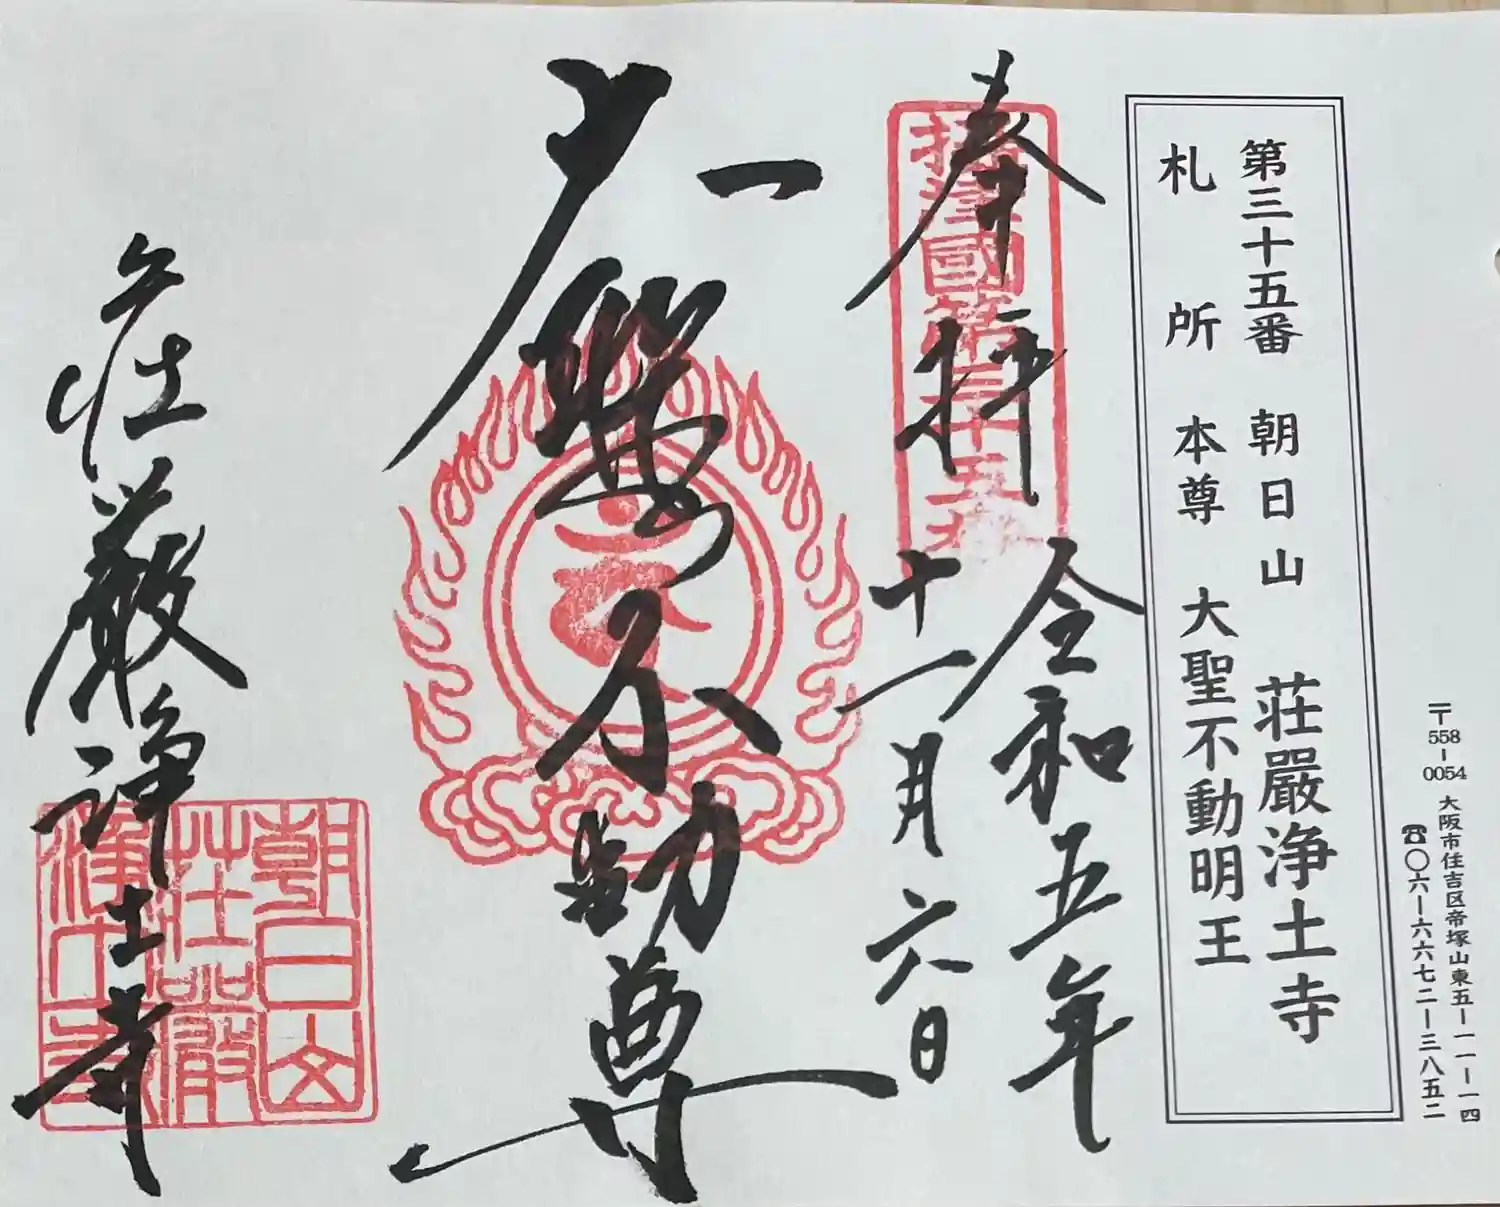 〒558-0054 大阪市住吉区帝塚山東五ー一一ー一四
☎〇六ー六六七二ー三八五二
第三十五番 朝日山 荘嚴浄土寺
札所 本尊 大聖不動明王
奉拝
令和五年
十一月六日
國第三十五
大聖不動尊
荘厳浄土寺
朝日山
荘嚴
浄土寺